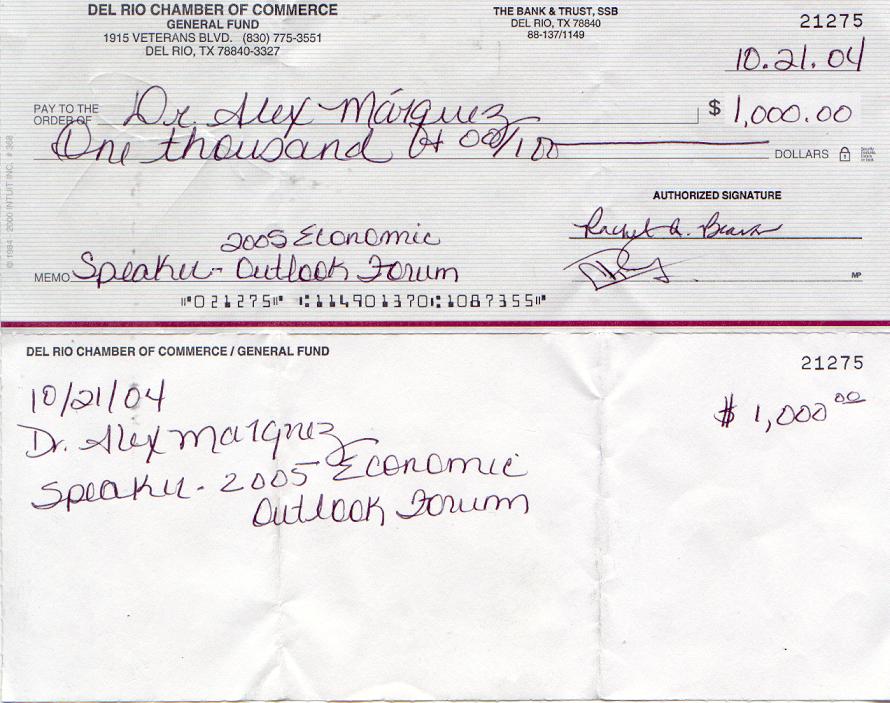 DEL RIO CHAMBER OF COMMERCE
GENERAL FUND
1915 VETERANS BLVD. (830) 775-3551
DEL RIO, TX 78840-3327
THE BANK & TRUST, SSB
DEL RIO, TX 78840
88-137/1149
21275
10.21.04
PAY TO THE
ORDER OF Dr. Alex Márquez $ 1,000.00
One thousand & 00/100 DOLLARS
AUTHORIZED SIGNATURE
2005 Economic
MEMO Speaker - Outlook Forum
MP
⑈021275⑈ ⑆114901370⑆1087355⑈
© 1984 · 2000 INTUIT INC. # 368
DEL RIO CHAMBER OF COMMERCE / GENERAL FUND
21275
10/21/04
$ 1,000.00
Dr. Alex Marquez
Speaker - 2005 Economic
Outlook Forum